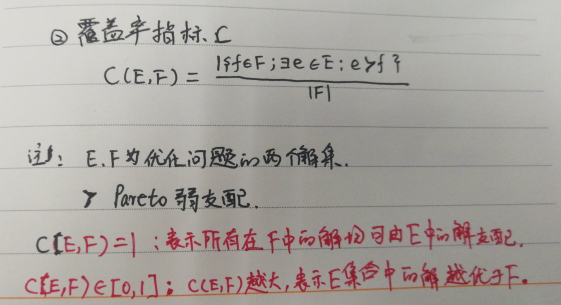 ② 覆盖率指标 C
C(E,F) = |{f∈F;∃e∈E:e≻f}| / |F|
注: E.F为优化问题的两个解集.
≻ Pareto 弱支配.
C(E,F)=1 ;表示所有在F中的解均可由E中的解支配.
C(E,F)∈[0,1]; C(E,F)越大,表示E集合中的解越优于F。